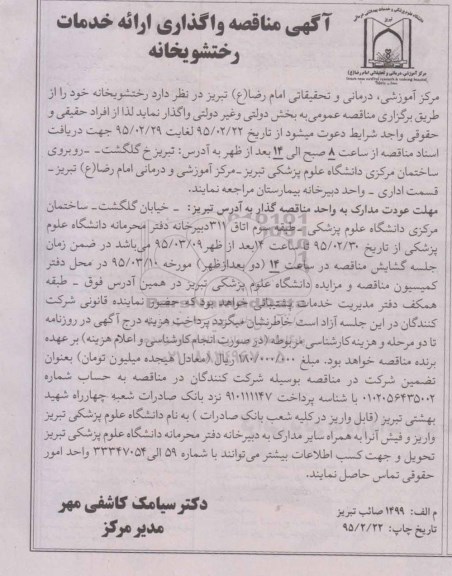 آگهی مناقصه واگذاری ارائه خدمات
رختشویخانه
دانشگاه علوم پزشکی و خدمات بهداشتی درمانی تبریز
مرکز آموزشی، درمانی و تحقیقاتی امام رضا(ع)
مرکز آموزشی، درمانی و تحقیقاتی امام رضا(ع) تبریز در نظر دارد رختشویخانه خود را از
طریق برگزاری مناقصه عمومی به بخش دولتی وغیر دولتی واگذار نماید لذا از افراد حقیقی و
حقوقی واجد شرایط دعوت میشود از تاریخ ۹۵/۰۲/۲۲ لغایت ۹۵/۰۲/۲۹ جهت دریافت
اسناد مناقصه از ساعت ۸ صبح الی ۱۴ بعد از ظهر به آدرس: تبریز خ گلگشت- روبروی
ساختمان مرکزی دانشگاه علوم پزشکی تبریز-مرکز آموزشی و درمانی امام رضا(ع) تبریز-
قسمت اداری - واحد دبیرخانه بیمارستان مراجعه نمایند.
مهلت عودت مدارک به واحد مناقصه گذار به آدرس تبریز: - خیابان گلگشت- ساختمان
مرکزی دانشگاه علوم پزشکی - طبقه سوم اتاق ۳۱۱ دبیرخانه دفتر محرمانه دانشگاه علوم
پزشکی از تاریخ ۹۵/۰۲/۳۰ تا ساعت ۱۴ بعد از ظهر ۹۵/۰۳/۰۹ می‌باشد در ضمن زمان
جلسه گشایش مناقصه در ساعت ۱۴ (دو بعدازظهر) مورخه ۹۵/۰۳/۱۰ در محل دفتر
کمیسیون مناقصه و مزایده دانشگاه علوم پزشکی تبریز در همین آدرس فوق - طبقه
همکف دفتر مدیریت خدمات پشتیبانی خواهد بود که حضور نماینده قانونی شرکت
کنندگان در این جلسه آزاد است خاطرنشان میگردد پرداخت هزینه درج آگهی در روزنامه
تا دو مرحله و هزینه کارشناسی مربوطه (در صورت انجام کارشناسی و اعلام هزینه) بر عهده
برنده مناقصه خواهد بود. مبلغ ۱۸۰/۰۰۰/۰۰۰ ریال (معادل هیجده میلیون تومان) بعنوان
تضمین شرکت در مناقصه بوسیله شرکت کنندگان در مناقصه به حساب شماره
۰۱۰۲۰۵۶۴۳۵۰۰۲ با شناسه پرداخت ۹۱۰۱۱۱۱۴۷ نزد بانک صادرات شعبه چهارراه شهید
بهشتی تبریز (قابل واریز در کلیه شعب بانک صادرات ) به نام دانشگاه علوم پزشکی تبریز
واریز و فیش آنرا به همراه سایر مدارک به دبیرخانه دفتر محرمانه دانشگاه علوم پزشکی تبریز
تحویل و جهت کسب اطلاعات بیشتر می‌توانند با شماره ۵۹ الی ۳۳۳۴۷۰۵۴ واحد امور
حقوقی تماس حاصل نمایند.
دکتر سیامک کاشفی مهر
مدیر مرکز
م الف: ۱۴۹۹ صائب تبریز
تاریخ چاپ: ۹۵/۲/۲۲